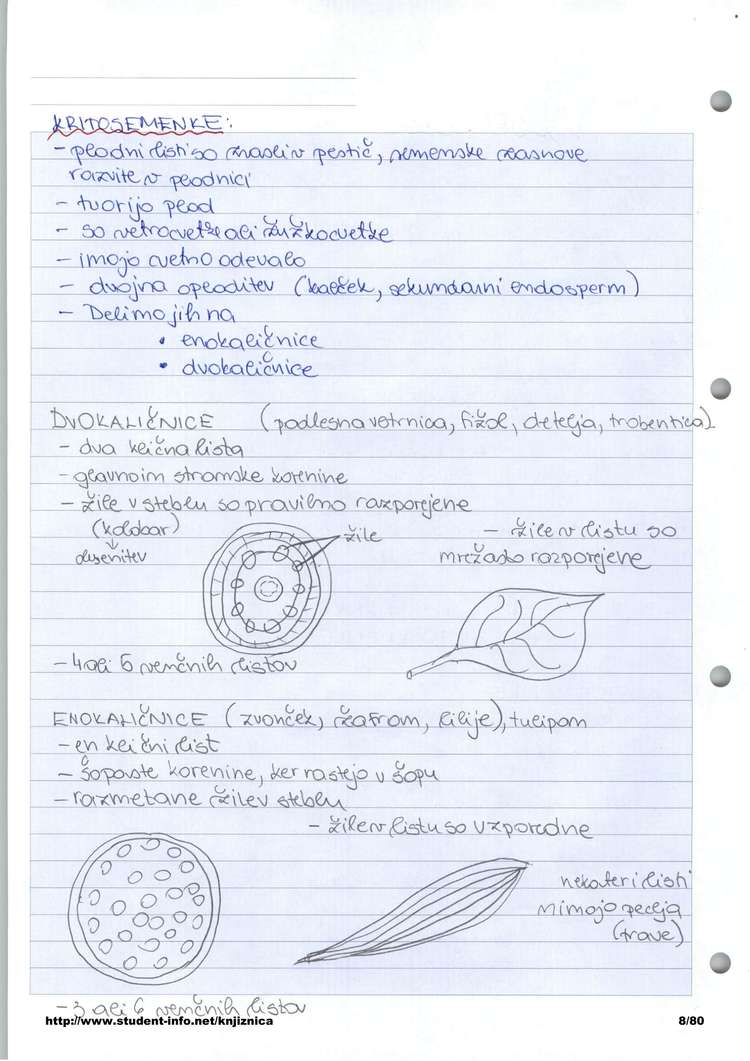 KRITOSEMENKE:
- plodni listi so zrasli v pestič, semenske zasnove
razvite v plodnici
- tvorijo plod
- so vetrocvetke ali žužkocvetke
- imajo cvetno odevalo
- dvojna oploditev (kalček, sekundarni endosperm)
- Delimo jih na
• enokaličnice
• dvokaličnice
DVOKALIČNICE (podlesna vetrnica, fižol, detelja, trobentica)
- dva klična lista
- glavno in stranske korenine
- žile v steblu so pravilno razporejene
(kolobar) žile - žile v listu so
olesenitev mrežasto razporejene
- 4 ali 5 venčnih listov
ENOKALIČNICE (zvonček, žafran, lilije), tulipan
- en klični list
- šopaste korenine, ker rastejo v šopu
- razmetane žile v steblu
- žile v listu so vzporedne
nekateri listi
nimajo peclja
(trave)
- 3 ali 6 venčnih listov
http://www.student-info.net/knjiznica 8/80